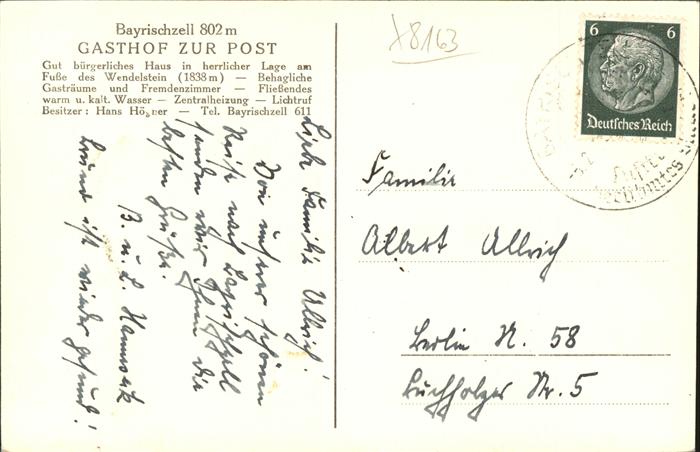 Bayrischzell 802 m
GASTHOF ZUR POST
Gut bürgerliches Haus in herrlicher Lage am
Fuße des Wendelstein (1838 m) — Behagliche
Gasträume und Fremdenzimmer — Fließendes
warm u. kalt. Wasser — Zentralheizung — Lichtruf
Besitzer: Hans — Tel. Bayrischzell 611
Liebe Familie Ullrich!
Von unserer schönen
Reise nach Bayrischzell
senden wir Ihnen die
besten Grüße.
B. u. L.
ist wieder gesund!
X8163
6 6
Deutsches Reich
Familie
Albert Ullrich
Berlin N. 58
Buchholzer Nr. 5